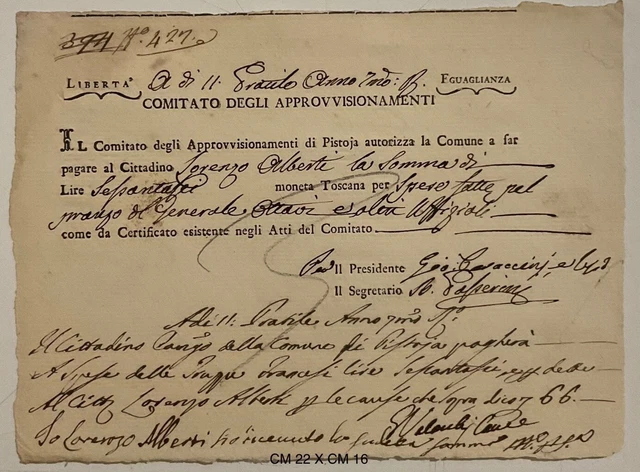 394 N.º 427.
LIBERTA' A di 11. Pratile Anno 7mo: Rf. EGUAGLIANZA
COMITATO DEGLI APPROVVISIONAMENTI
IL Comitato degli Approvvisionamenti di Pistoja autorizza la Comune a far
pagare al Cittadino Lorenzo Alberti la Somma di
Lire Sessantasei moneta Toscana per Spese fatte pel
pranzo del Generale Ottavi e altri Uffiziali
come da Certificato esistente negli Atti del Comitato.
Il Presidente Gio:
Il Segretario
A di 11: Pratile Anno 7mo Rf:
Il Cittadino Camgo della Comune di Pistoja pagherà
A spese delle Truppe Francesi lire Sessantasei, e
Al Citt. Lorenzo Alberti le cause che sopra dico 66.
Io Lorenzo Alberti ho ricevuto
CM 22 X CM 16